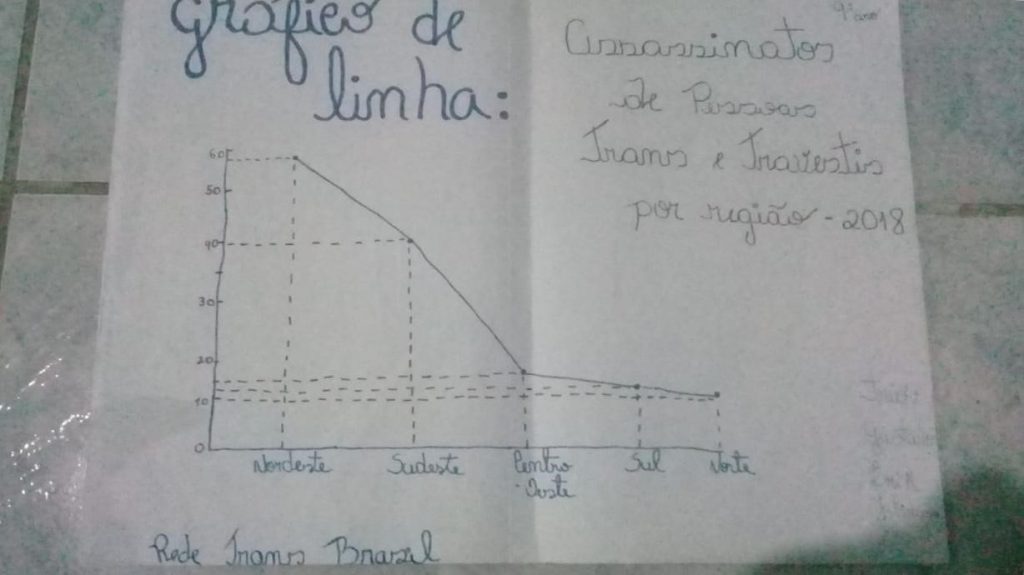 Gráfico de
linha:
9º ano
Assassinatos
de Pessoas
Trans e Travestis
por região - 2018
60
50
40
30
20
10
0
Nordeste
Sudeste
Centro
-Oeste
Sul
Norte
Rede Trans Brasil